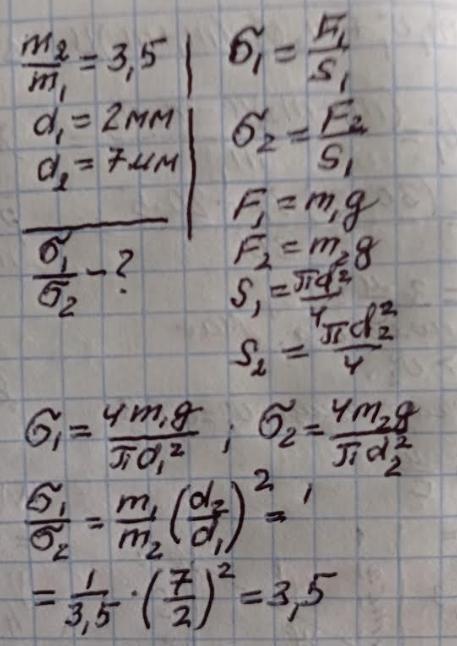 m₂/m₁ = 3,5
d₁ = 2мм
d₂ = 7мм
σ₁/σ₂ - ?
σ₁ = F₁/S₁
σ₂ = F₂/S₁
F₁ = m₁g
F₂ = m₂g
S₁ = πd²/4
S₂ = πd₂²/4
σ₁ = 4m₁g/πd₁² ; σ₂ = 4m₂g/πd₂²
σ₁/σ₂ = m₁/m₂ (d₂/d₁)² =
= 1/3,5 · (7/2)² = 3,5